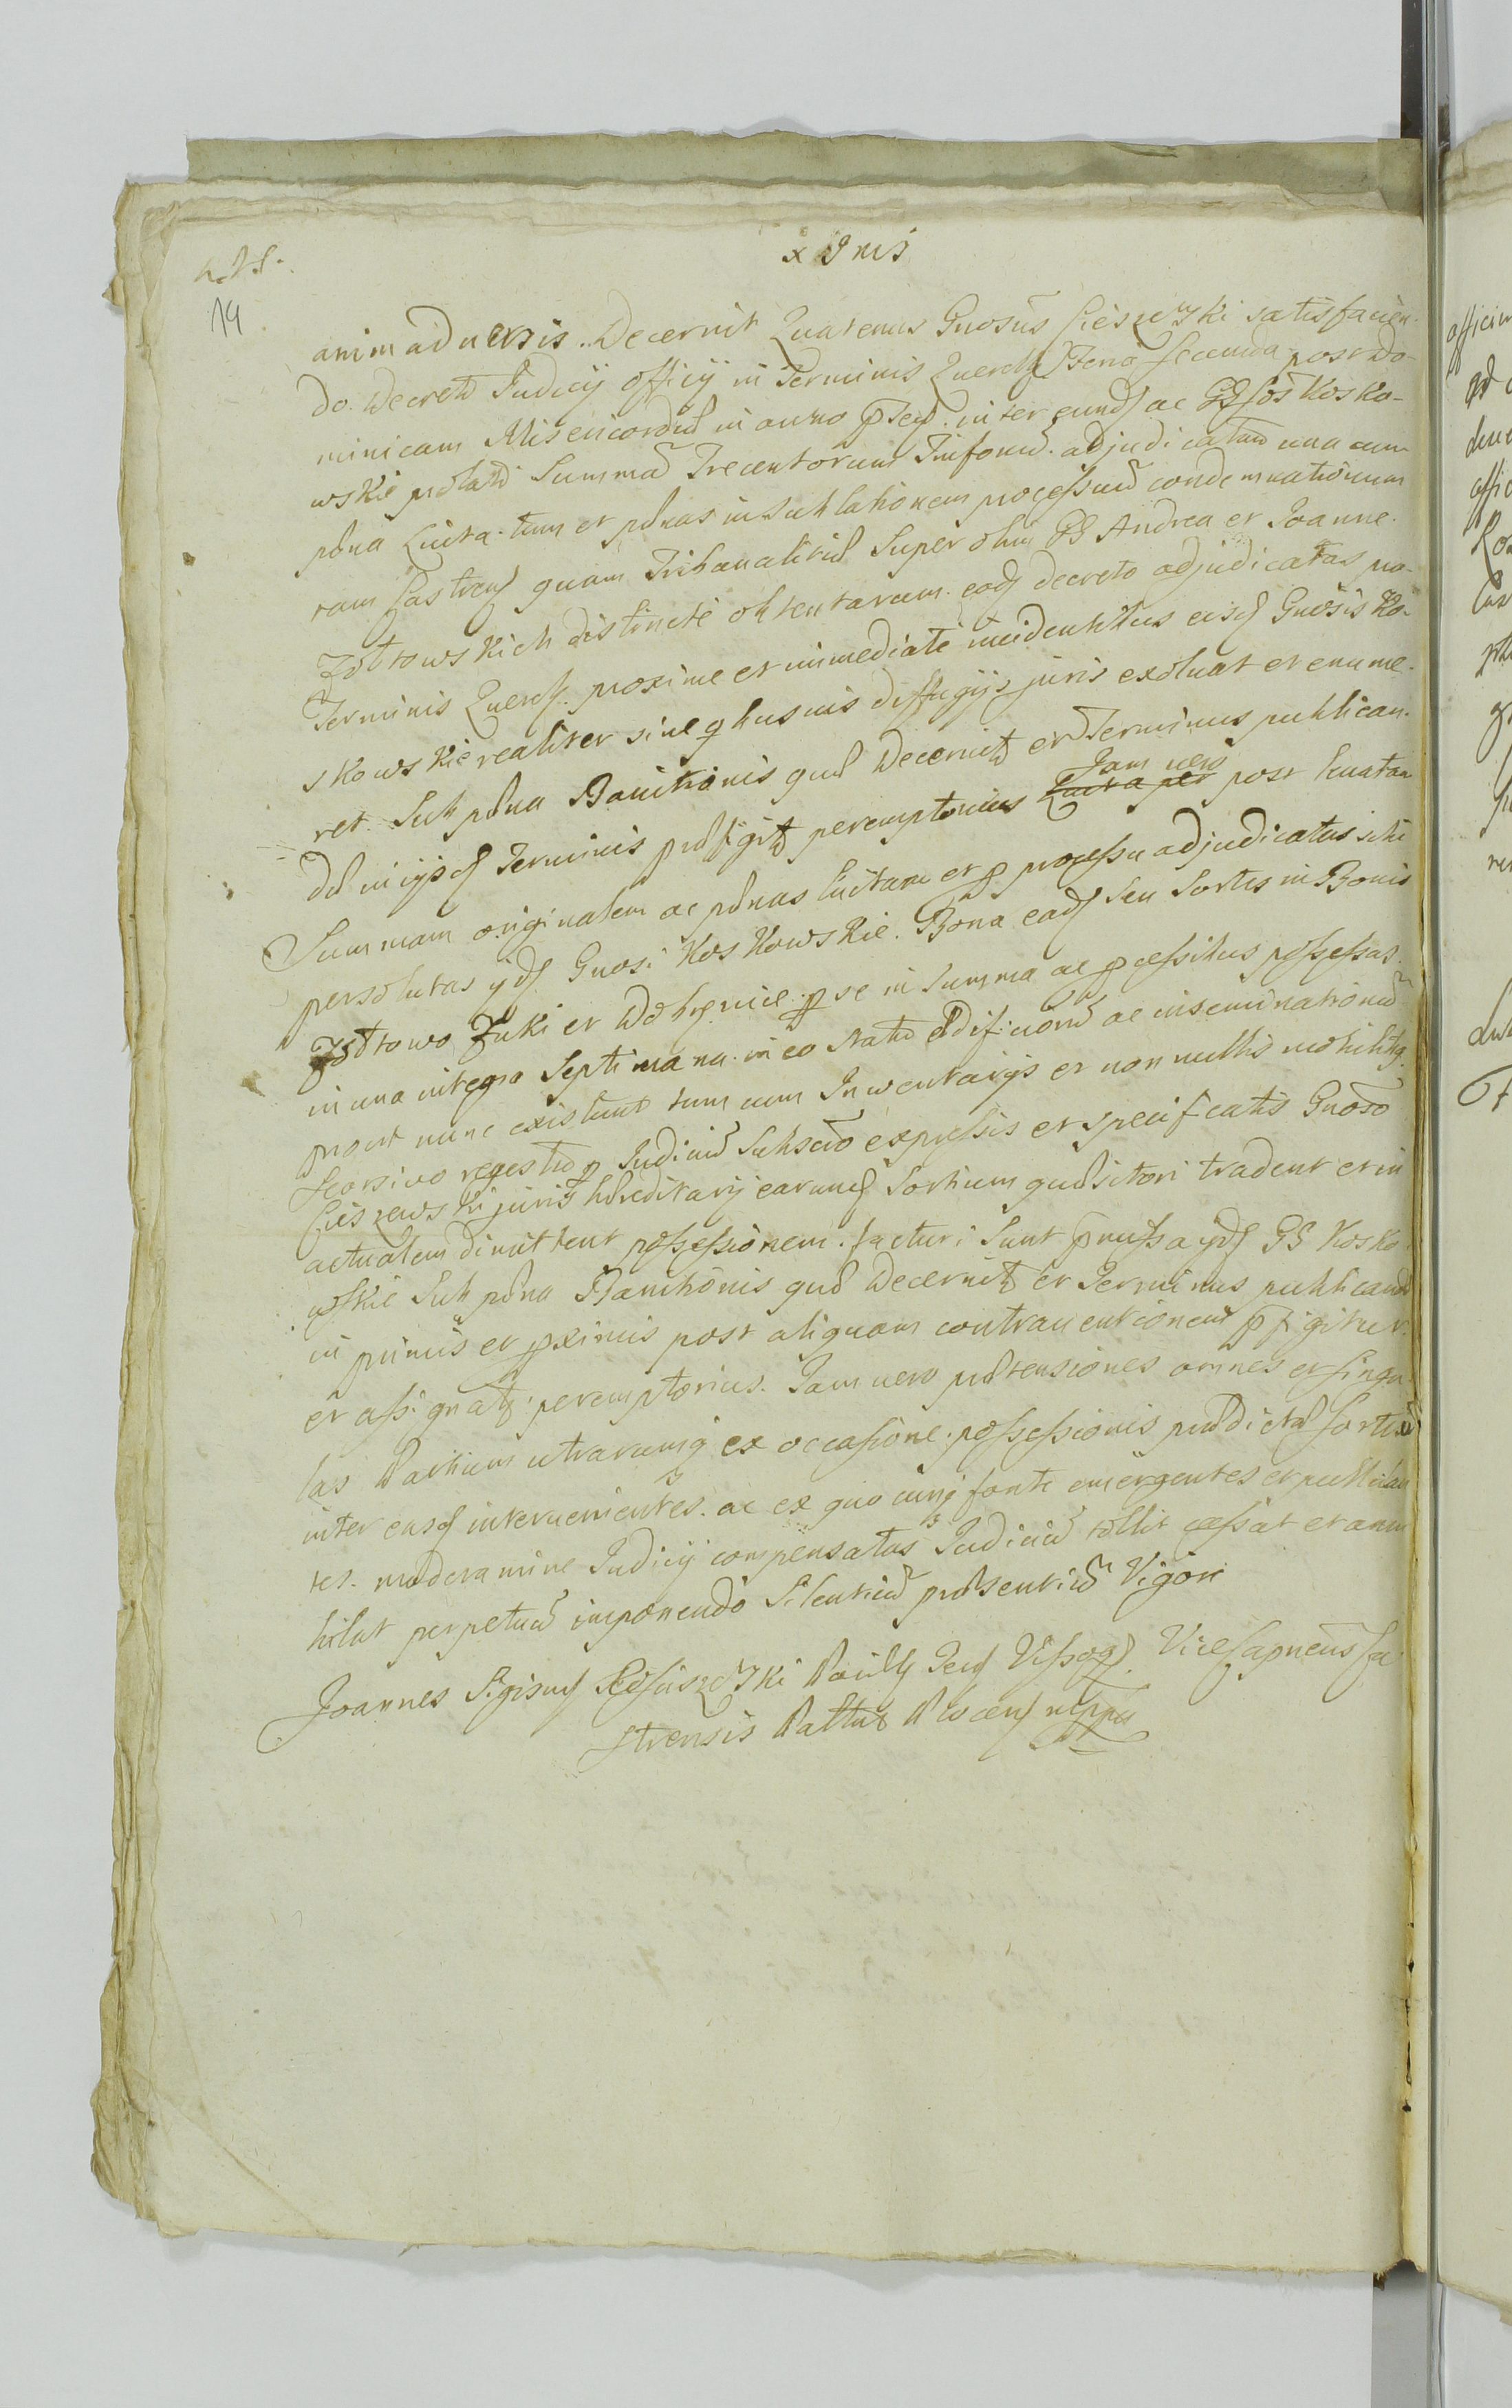 x Dnis
14
animaduersis. Decernit Quatenus Gnosus Cieszewski satisfacien-
do Decreto Judicij officij in Terminis Querel Feria secunda post Do-
minicam Misericordiæ in anno præs. inter eund ac GGsos Kosko-
wskie prolato Summã Trecentorum Tinforũ. adjudicatam una cum
pæna Luita. tum et pænas in sublationem processuũ condemnationum
tam Castren quam Tribunalitiũ super olim GG Andrea et Joanne
Zołtowskich distincte obtentarum. eod decreto adjudicatas pro
Terminis Querel. proxime et immediate incidentibus eisd Gnosis Ko-
skowskie realiter sine quibusuis diffugijs juris exoluat et enume-
ret. Sub pæna Banitionis quæ Decernitur et Terminus publican-
dæ in ijsd Terminis præfigitur peremptorius Luita per Jam uero post leuatam
Summam originalem ac pænas luitam et pro processu adjudicatas sibi
persolutas ijd Gnosi Koskowskie. Bona ead seu Sortes in Bonis
Zołtowo Zuki et Dobrznice per se in Summa ac processibus possessas
in una integra Septimana. in eo statu ædificiorũ ac inseminationũ
prout nunc existunt tum cum Inwentarijs et non nullis mobilibus
seorsiuo regestro per Judiciũ Subscto expressis et specificatis Gnoso
Cieszewski juris hæreditarij earumd Sortium quæsitori tradent et in
actualem dimittent possessionem. facturi sunt præmissa ijd GG Kosko
wskie Sub pæna Banitionis quæ Decernitur et Terminus publicandæ
in primis et proximis post aliquam contrauentionem præfigitur
et assignatur peremptorius. Jam uero prætensiones omnes et singu
las Partium utrarumq ex occasione possessionis prædictæ sortiũ
inter easd interuenientes. ac ex quocunq fonte emergentes et pullulan
tes. moderamine Judicij compensatas Judiciũ tollit cassat et anni
hilat perpetuũ imponendo Silentiũ præsentiũ Vigore
Joannes Vice Capneus Ca
strensis Płocen mppa